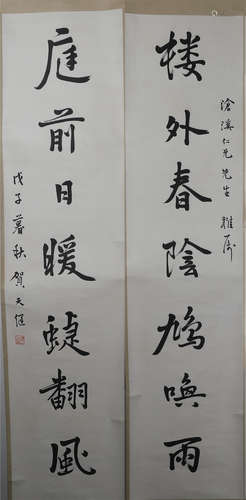 滄溪仁兄先生雅屬
楼外春陰鳩喚雨
庭前日暖蜨翻風
戊子暮秋賀天健